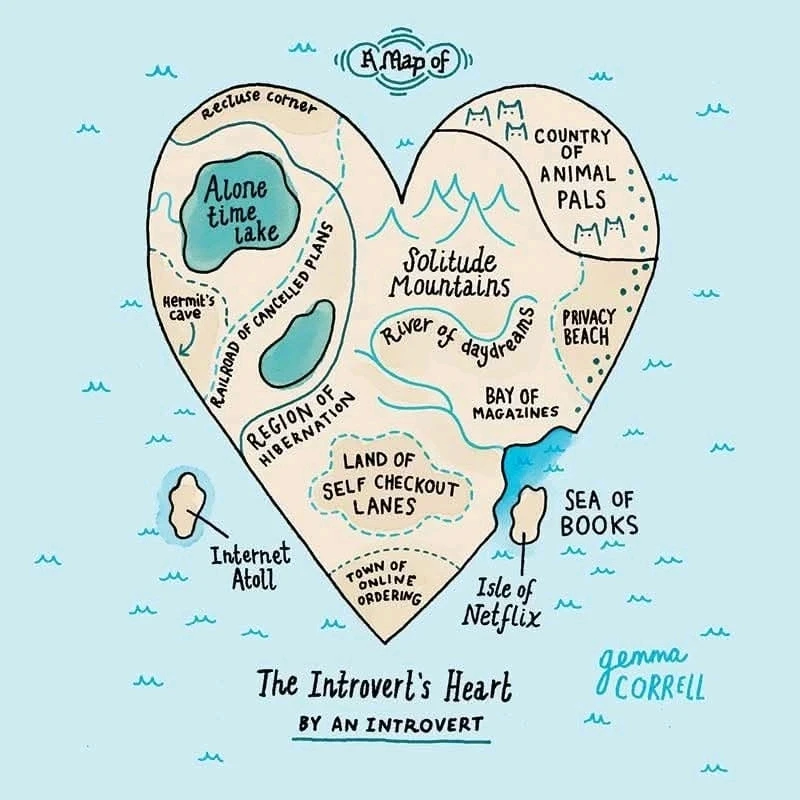 A Map of
Recluse corner
COUNTRY
OF
ANIMAL
PALS
Alone
time
lake
Solitude
Mountains
Hermit's
cave
RAILROAD OF CANCELLED PLANS
River of daydreams
PRIVACY
BEACH
BAY OF
MAGAZINES
REGION OF
HIBERNATION
LAND OF
SELF CHECKOUT
LANES
SEA OF
BOOKS
Internet
Atoll
TOWN OF
ONLINE
ORDERING
Isle of
Netflix
gemma
CORRELL
The Introvert's Heart
BY AN INTROVERT